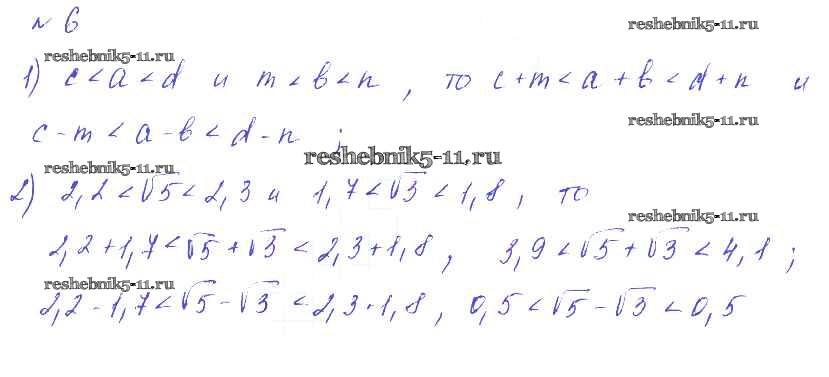 № 6
reshebnik5-11.ru
reshebnik5-11.ru
1) c < a < d и m < b < n , то c + m < a + b < d + n и
reshebnik5-11.ru
c - m < a - b < d - n ;
reshebnik5-11.ru
reshebnik5-11.ru
2) 2,2 < √5 < 2,3 и 1,7 < √3 < 1,8 , то
reshebnik5-11.ru
2,2 + 1,7 < √5 + √3 < 2,3 + 1,8 , 3,9 < √5 + √3 < 4,1 ;
reshebnik5-11.ru
2,2 - 1,7 < √5 - √3 < 2,3 - 1,8 , 0,5 < √5 - √3 < 0,5